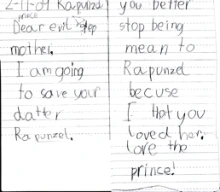 2-11-09 Rapunzel
prince
Dear evil step
mother.
I am going
to save your
datter
Rapunzel.
you better
stop being
mean to
Rapunzel
becuse
I thot you
loved her.
love the
prince!